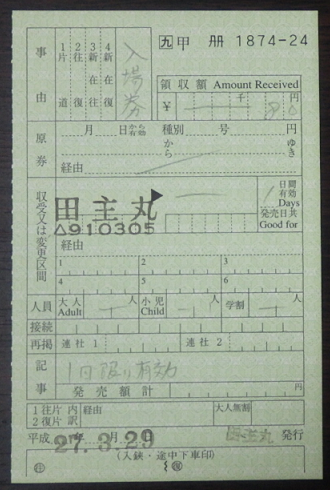 九 甲 册 1874-24
事由
1片道
2往復
3新在往
4新在復
入場券
領収額 Amount Received
￥ 千 円
原券
月 日から有効 種別 号 円
から ゆき
経由
収受又は変更区間
田主丸
△910305
1日間有効 Days
発売日共 Good for
経由
1 2 3
4 5 6
人員 大人 Adult 人 小児 Child 人 学割 人
接続
再掲 連社1 連社2
記事
1回限り有効
発売額計 円
1往片 内
2復片 訳
経由
大人無割
平成 27.3.29 年 月 日
田主丸 発行
(入鋏・途中下車印)